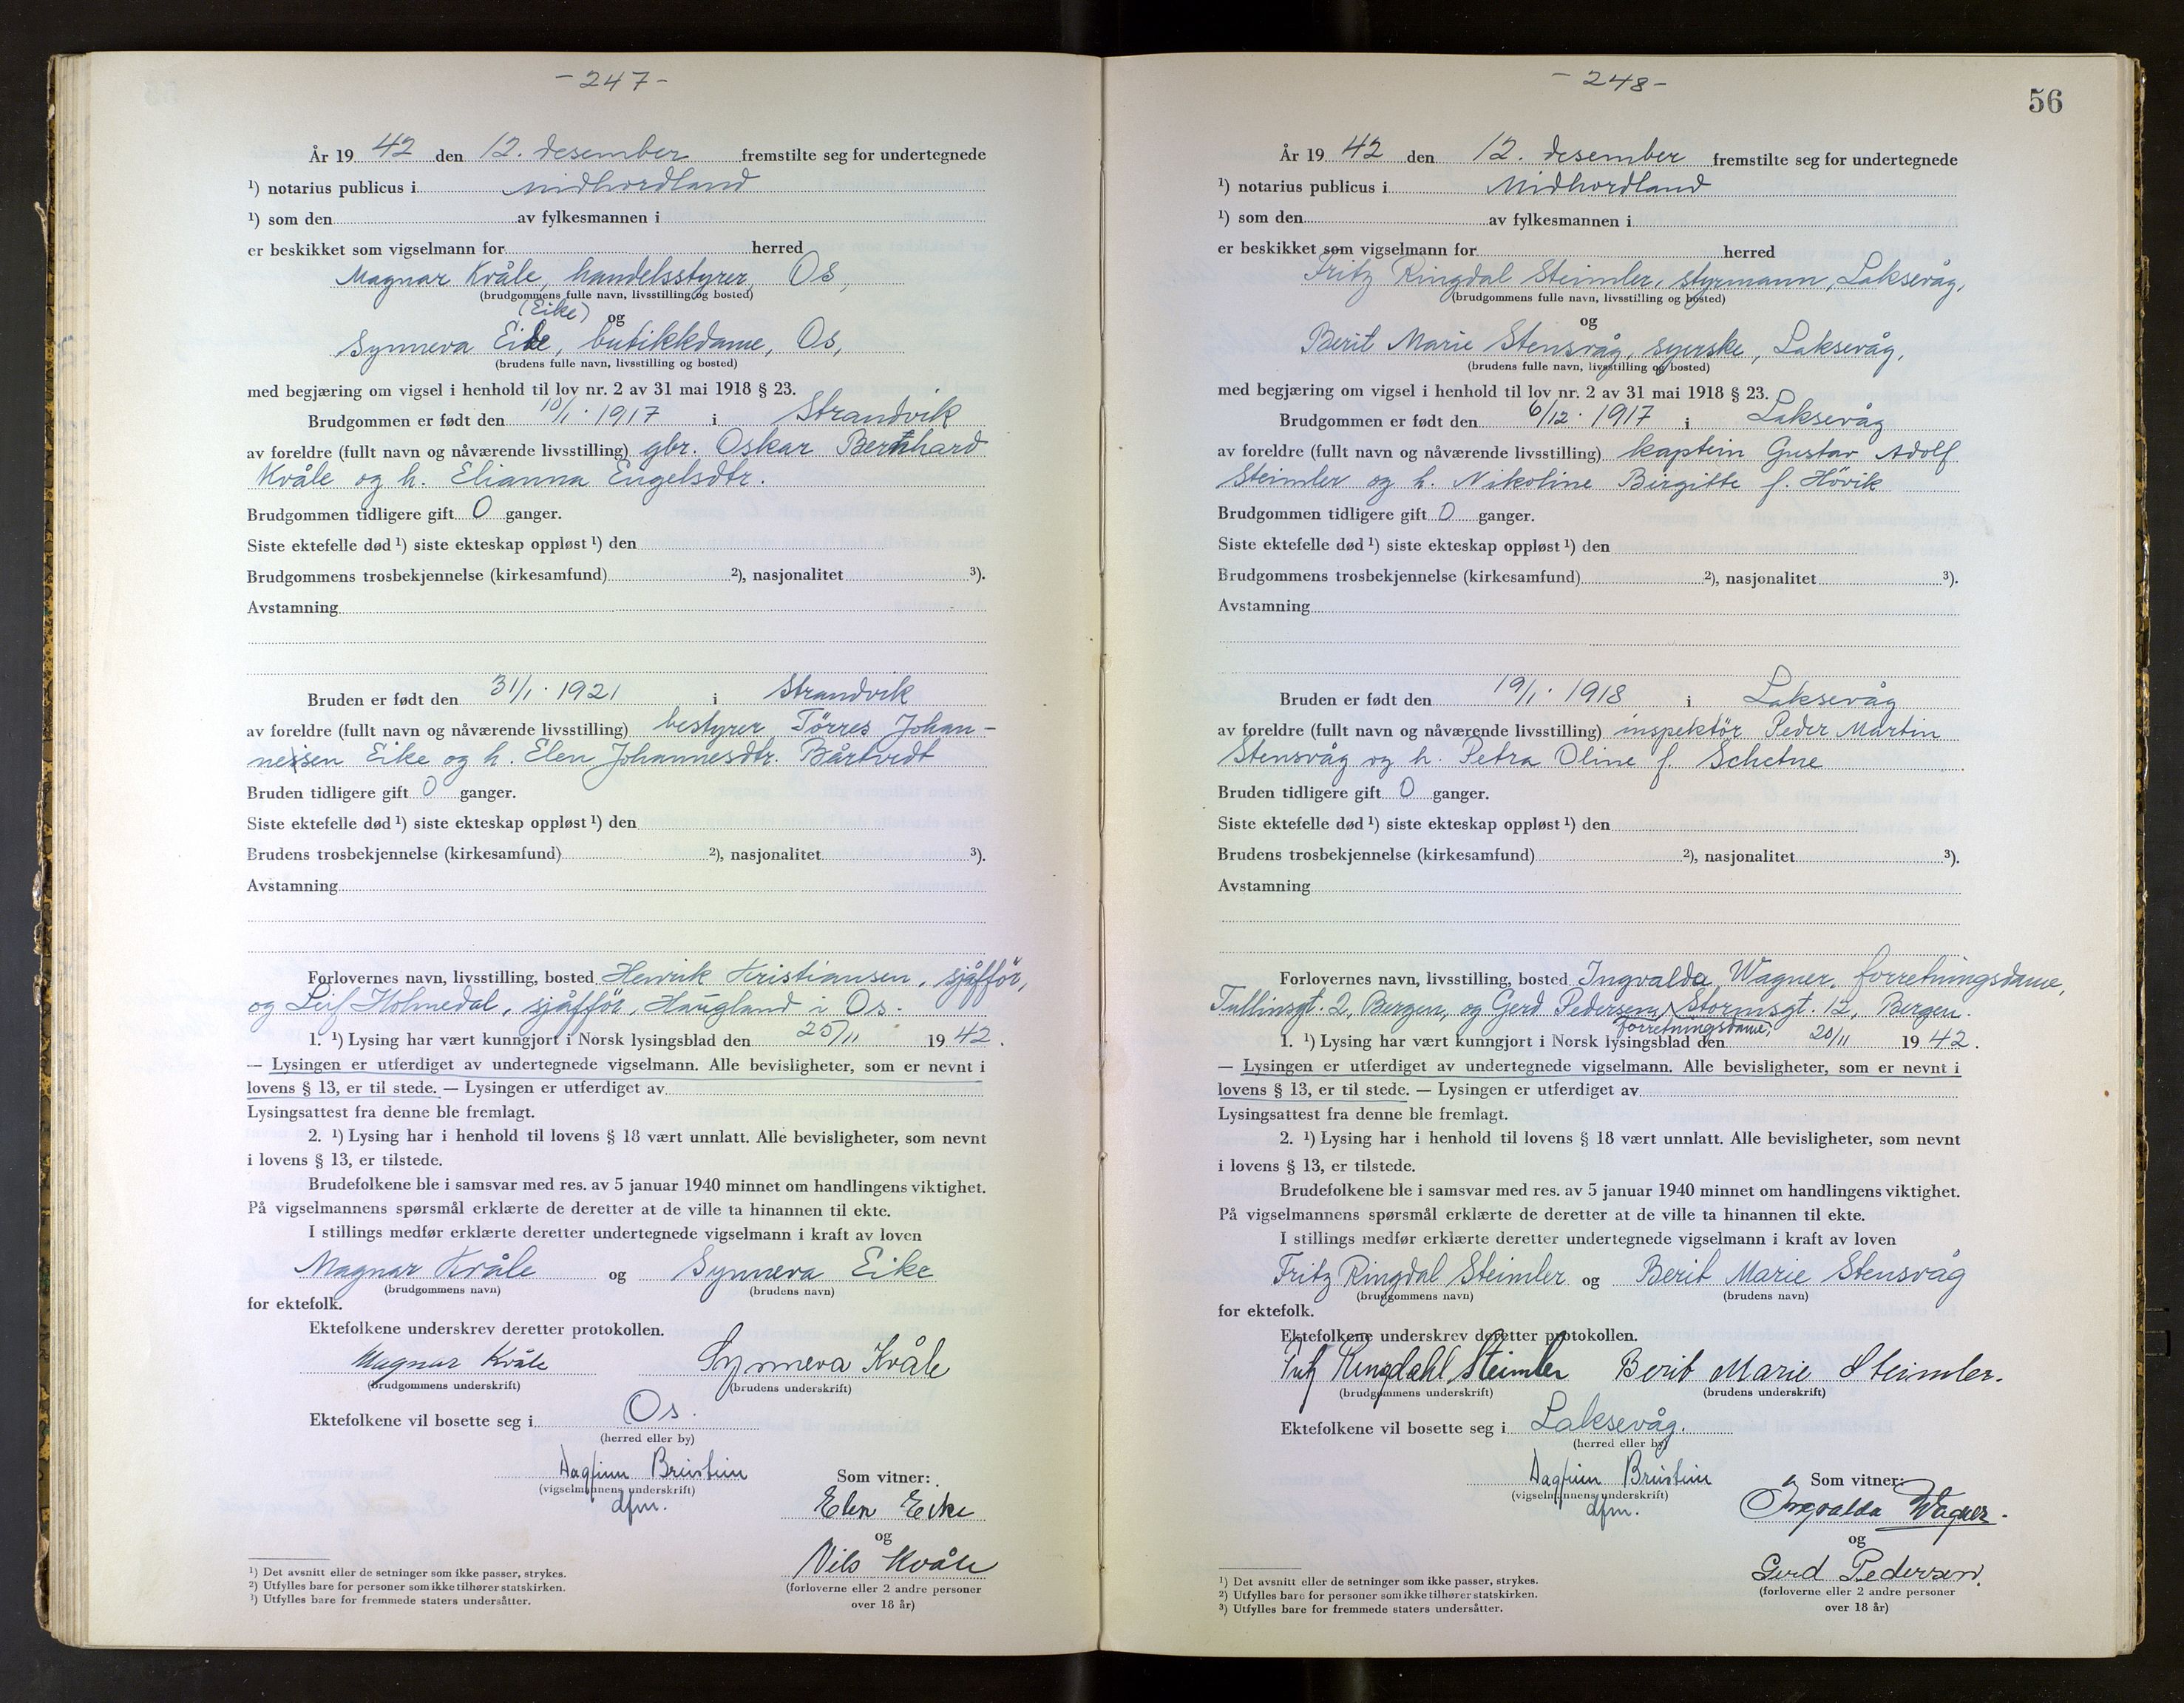 - 247 -
År 19 42 den 12. desember fremstilte seg for undertegnede
¹) notarius publicus i Midhordland
¹) som den av fylkesmannen i
er beskikket som vigselmann for herred
Magnar Kvåle, handelsstyrer, Os,
(brudgommens fulle navn, livsstilling og bosted)
(Eike) og
Synneva Eide, butikkdame, Os,
(brudens fulle navn, livsstilling og bosted)
med begjæring om vigsel i henhold til lov nr. 2 av 31 mai 1918 § 23.
Brudgommen er født den 10/1. 1917 i Strandvik
av foreldre (fullt navn og nåværende livsstilling) gbr. Oskar Bernhard
Kvåle og h. Elianna Engelsdtr.
Brudgommen tidligere gift 0 ganger.
Siste ektefelle død ¹) siste ekteskap oppløst ¹) den
Brudgommens trosbekjennelse (kirkesamfund) ²), nasjonalitet ³).
Avstamning
Bruden er født den 31/1. 1921 i Strandvik
av foreldre (fullt navn og nåværende livsstilling) bestyrer Tørres Johan-
nessen Eike og h. Elen Johannesdtr. Bårtvedt
Bruden tidligere gift 0 ganger.
Siste ektefelle død ¹) siste ekteskap oppløst ¹) den
Brudens trosbekjennelse (kirkesamfund) ²), nasjonalitet ³).
Avstamning
Forlovernes navn, livsstilling, bosted Henrik Kristiansen, sjåfför,
og Leif Holmedal, sjåfför, Haugland i Os.
1. ¹) Lysing har vært kunngjort i Norsk lysingsblad den 25/11 19 42.
— Lysingen er utferdiget av undertegnede vigselmann. Alle bevisligheter, som er nevnt i
lovens § 13, er til stede. — Lysingen er utferdiget av
Lysingsattest fra denne ble fremlagt.
2. ¹) Lysing har i henhold til lovens § 18 vært unnlatt. Alle bevisligheter, som nevnt
i lovens § 13, er tilstede.
Brudefolkene ble i samsvar med res. av 5 januar 1940 minnet om handlingens viktighet.
På vigselmannens spørsmål erklærte de deretter at de ville ta hinannen til ekte.
I stillings medfør erklærte deretter undertegnede vigselmann i kraft av loven
Magnar Kvåle og Synneva Eike
(brudgommens navn) (brudens navn)
for ektefolk.
Ektefolkene underskrev deretter protokollen.
Magnar Kvåle Synneva Kvåle
(brudgommens underskrift) (brudens underskrift)
Ektefolkene vil bosette seg i Os.
(herred eller by)
Dagfinn Breistein Som vitner:
(vigselmannens underskrift)
dfm. Elen Eike
og
Nils Kvåle
(forloverne eller 2 andre personer
over 18 år)
¹) Det avsnitt eller de setninger som ikke passer, strykes.
²) Utfylles bare for personer som ikke tilhører statskirken.
³) Utfylles bare for fremmede staters undersåtter.
- 248 -
56
År 19 42 den 12. desember fremstilte seg for undertegnede
¹) notarius publicus i Midhordland
¹) som den av fylkesmannen i
er beskikket som vigselmann for herred
Fritz Ringdal Steimler, styrmann, Laksevåg,
(brudgommens fulle navn, livsstilling og bosted)
og
Berit Marie Stensvåg, syerske, Laksevåg,
(brudens fulle navn, livsstilling og bosted)
med begjæring om vigsel i henhold til lov nr. 2 av 31 mai 1918 § 23.
Brudgommen er født den 6/12. 1917 i Laksevåg
av foreldre (fullt navn og nåværende livsstilling) kaptein Gustav Adolf
Steimler og h. Nikoline Birgitte f. Hövik
Brudgommen tidligere gift 0 ganger.
Siste ektefelle død ¹) siste ekteskap oppløst ¹) den
Brudgommens trosbekjennelse (kirkesamfund) ²), nasjonalitet ³).
Avstamning
Bruden er født den 19/1. 1918 i Laksevåg
av foreldre (fullt navn og nåværende livsstilling) inspektör Peder Martin
Stensvåg og h. Petra Oline f. Schetne
Bruden tidligere gift 0 ganger.
Siste ektefelle død ¹) siste ekteskap oppløst ¹) den
Brudens trosbekjennelse (kirkesamfund) ²), nasjonalitet ³).
Avstamning
Forlovernes navn, livsstilling, bosted Ingvalda Wagner, forretningsdame,
Tullinsgt. 2, Bergen, og Gerd Pedersen, Stormsgt. 12, Bergen.
forretningsdame,
1. ¹) Lysing har vært kunngjort i Norsk lysingsblad den 20/11 19 42.
— Lysingen er utferdiget av undertegnede vigselmann. Alle bevisligheter, som er nevnt i
lovens § 13, er til stede. — Lysingen er utferdiget av
Lysingsattest fra denne ble fremlagt.
2. ¹) Lysing har i henhold til lovens § 18 vært unnlatt. Alle bevisligheter, som nevnt
i lovens § 13, er tilstede.
Brudefolkene ble i samsvar med res. av 5 januar 1940 minnet om handlingens viktighet.
På vigselmannens spørsmål erklærte de deretter at de ville ta hinannen til ekte.
I stillings medfør erklærte deretter undertegnede vigselmann i kraft av loven
Fritz Ringdal Steimler og Berit Marie Stensvåg
(brudgommens navn) (brudens navn)
for ektefolk.
Ektefolkene underskrev deretter protokollen.
Fritz Ringdahl Steimler Berit Marie Steimler.
(brudgommens underskrift) (brudens underskrift)
Ektefolkene vil bosette seg i Laksevåg.
(herred eller by)
Dagfinn Breistein Som vitner:
(vigselmannens underskrift)
dfm. Ingvalda Wagner.
og
Gerd Pedersen.
(forloverne eller 2 andre personer
over 18 år)
¹) Det avsnitt eller de setninger som ikke passer, strykes.
²) Utfylles bare for personer som ikke tilhører statskirken.
³) Utfylles bare for fremmede staters undersåtter.